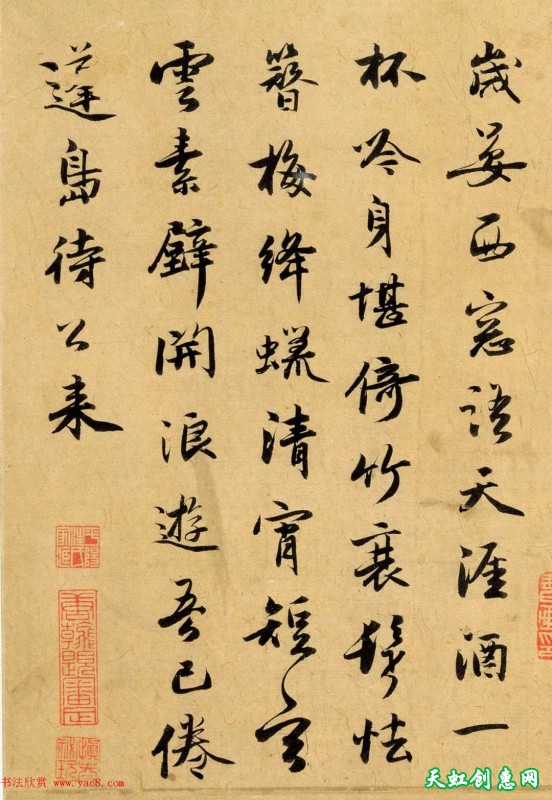 歲晏西窓語天涯酒一
杯冷身堪倚竹衰鬢怯
簪梅絳蠟清宵短玄
雲素壁開浪遊吾已倦
蓬島待公来
书法欣赏 www.yac8.com
天虹创惠网